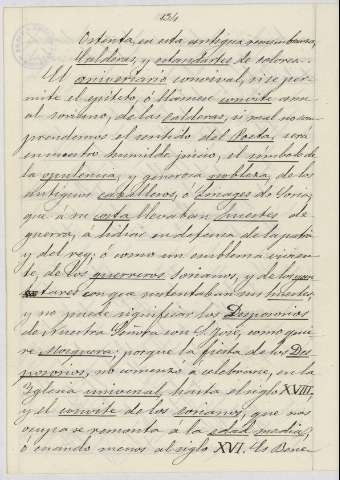 134
Ostenta, en esta antigua remembranza,
Calderas, y estandartes de colores.
El aniversario convival, si se per-
mite el epíteto, ó llámese convite anu-
al soriano, de las Calderas, si mal no com-
prendemos el sentido del Poeta, será
en nuestro humilde juicio, el símbolo de
la opulencia, y generosa nobleza, de los
antiguos caballeros, ó Linages de Soria,
que á su costa llevaban huestes de
guerra, á lidiar en defensa de la patria
y del rey; ó como un emblema vivien-
te, de los guerreros sorianos, y de los
tares con que sustentaban sus huestes,
y no puede significar los Desposorios
de Nuestra Señora con S. José, como quie-
re Mosquera; porque la fiesta de los Des-
posorios, no comenzó á celebrarse, en la
Iglesia universal hasta el siglo XVIII.
y el convite de los sorianos, que nos
ocupa se remonta á la edad media,
ó cuando menos al siglo XVI. Es Bene